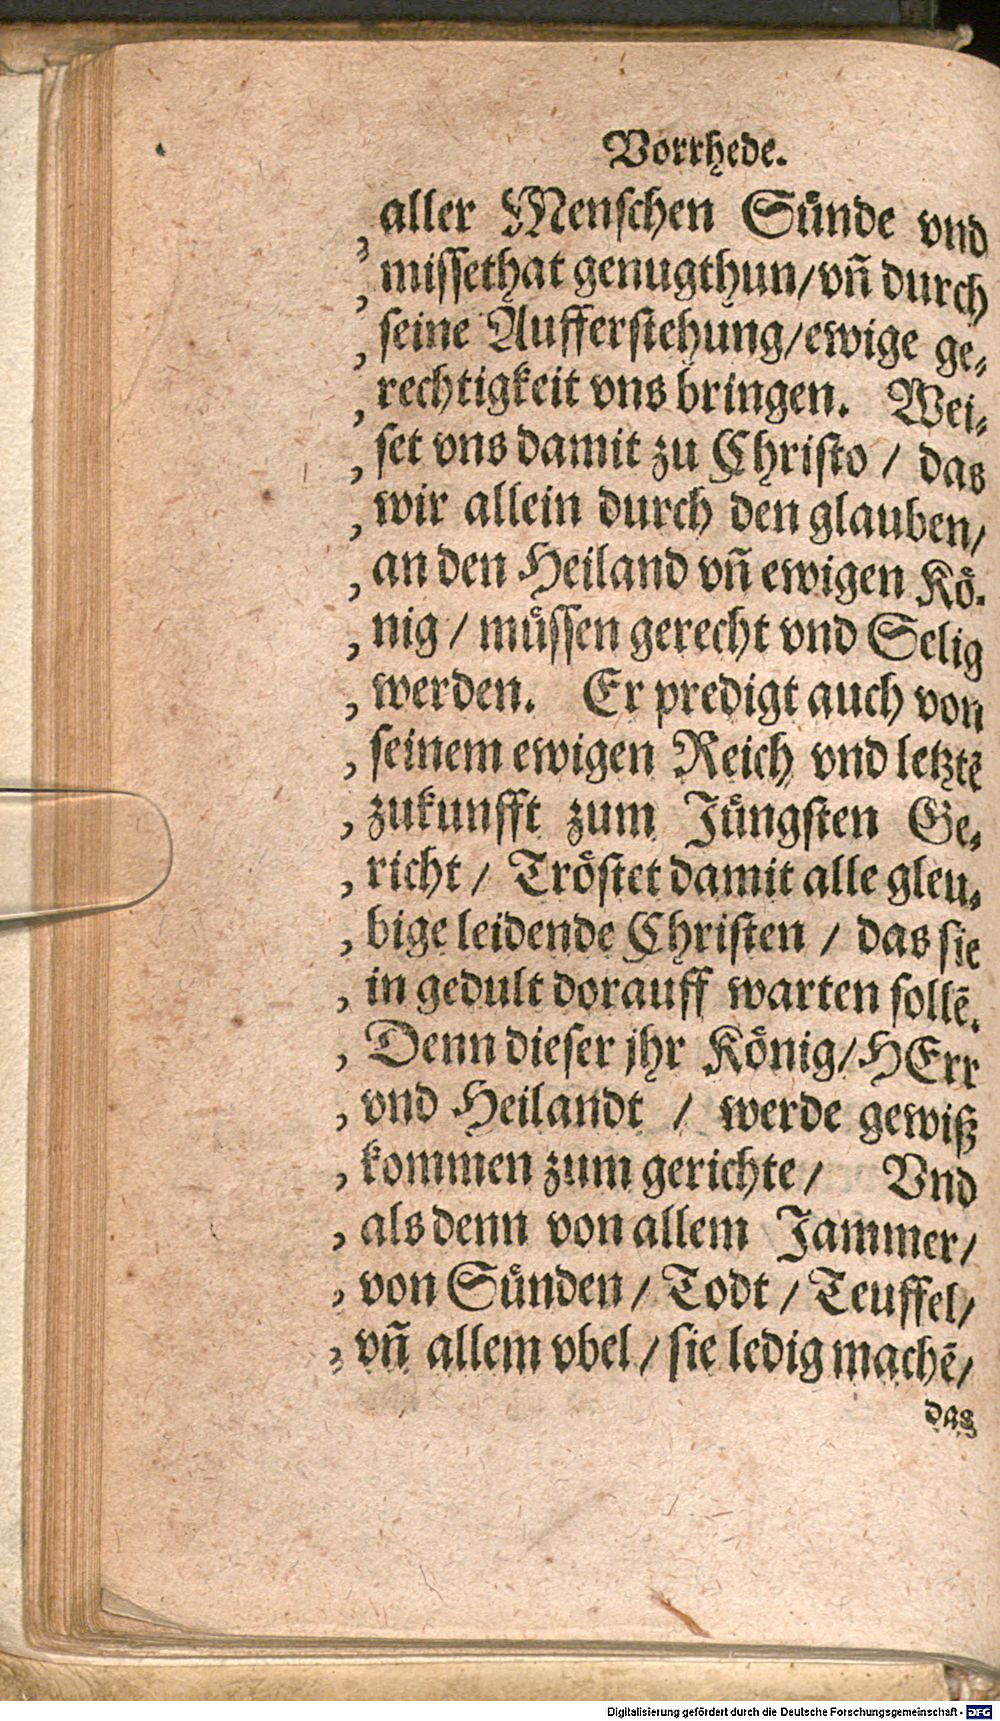 Vorrhede.
, aller Menschen Sünde vnd
, missethat genugthun/vñ durch
, seine Aufferstehung/ewige ge⸗
, rechtigkeit vns bringen. Wei⸗
, set vns damit zu Christo / das
, wir allein durch den glauben/
, an den Heiland vñ ewigen Kö⸗
, nig / müssen gerecht vnd Selig
, werden. Er predigt auch von
, seinem ewigen Reich vnd letztẽ
, zukunfft zum Jüngsten Ge⸗
, richt / Tröstet damit alle gleu⸗
, bige leidende Christen / das sie
, in gedult dorauff warten sollẽ.
, Denn dieser jhr König/HErr
, vnd Heilandt / werde gewiß
, kommen zum gerichte / Vnd
, als denn von allem Jammer/
, von Sünden / Todt / Teuffel/
, vñ allem vbel / sie ledig machẽ/
das
Digitalisierung gefördert durch die Deutsche Forschungsgemeinschaft - DFG